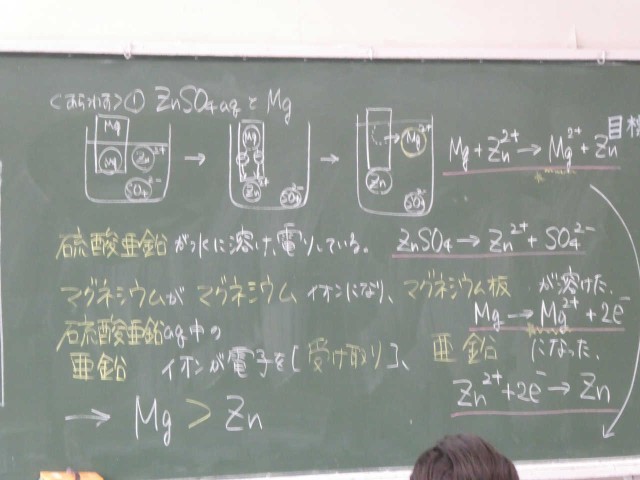 <あらわす>① ZnSO₄aqとMg
Mg Mg Zn²⁺ SO₄²⁻ → Mg Zn²⁺ SO₄²⁻ → Mg²⁺ Zn SO₄²⁻
Mg + Zn²⁺ → Mg²⁺ + Zn
硫酸亜鉛が水に溶け、電りしている。 ZnSO₄ → Zn²⁺ + SO₄²⁻
マグネシウムがマグネシウムイオンになり、マグネシウム板が溶けた。
Mg → Mg²⁺ + 2e⁻
硫酸亜鉛aq中の
亜鉛イオンが電子を[受け取り]、亜鉛になった。
Zn²⁺ + 2e⁻ → Zn
→ Mg > Zn